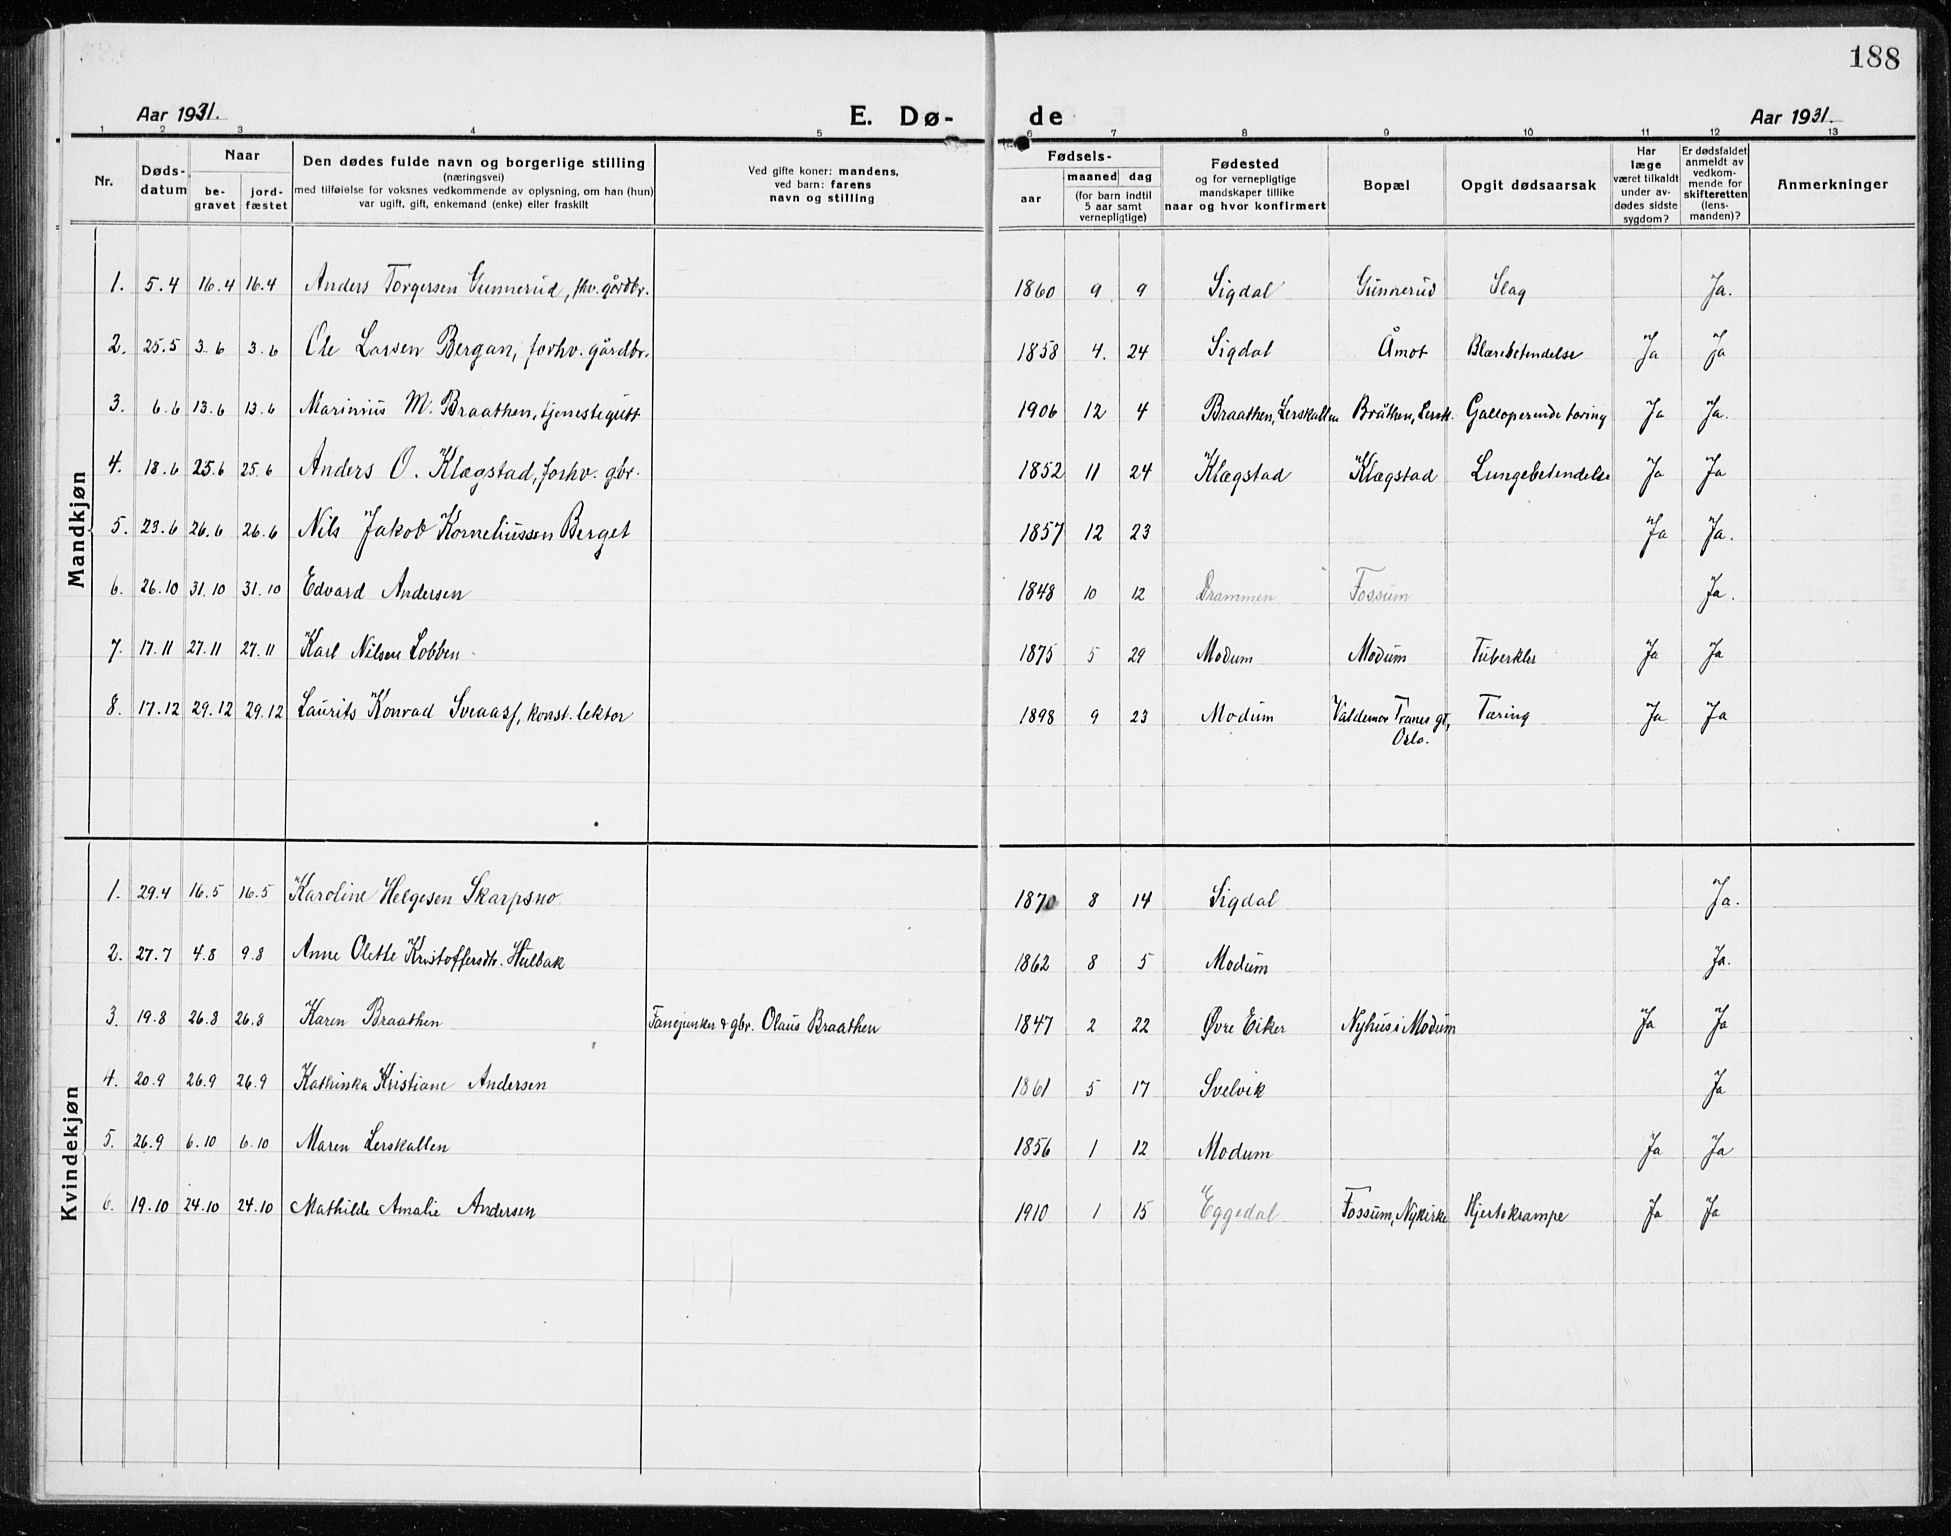 188
Aar 1931. E. Dø- de Aar 1931.
1 2 3 4 5 6 7 8 9 10 11 12 13
Nr. Døds-datum Naar be-gravet jord-fæstet Den dødes fulde navn og borgerlige stilling (næringsvei) med tilføielse for voksnes vedkommende av oplysning, om han (hun) var ugift, gift, enkemand (enke) eller fraskilt Ved gifte koner: mandens, ved barn: farens navn og stilling Fødsels- aar maaned dag (for barn indtil 5 aar samt vernepligtige) Fødested og for vernepligtige mandskaper tillike naar og hvor konfirmert Bopæl Opgit dødsaarsak Har læge været tilkaldt under av-dødes sidste sygdom? Er dødsfaldet anmeldt av vedkom-mende for skifteretten (lens-manden)? Anmerkninger
Mandkjøn
1. 5.4 16.4 16.4 Anders Torgersen Gunnerud, fhv. gårdbr. 1860 9 9 Sigdal Gunnerud Slag Ja.
2. 25.5 3.6 3.6 Ole Larsen Bergan, forhv. gårdbr. 1858 4. 24 Sigdal Åmot Blærebetendelse Ja Ja
3. 6.6 13.6 13.6 Marinius M. Braathen, tjenestegutt 1906 12 4 Braathen, Lerskallen Bråthen, Lersk. Galloperende tæring Ja Ja.
4. 18.6 25.6 25.6 Anders O. Klægstad, forhv. gbr. 1852 11 24 Klægstad Klægstad Lungebetendelse Ja Ja
5. 23.6 26.6 26.6 Nils Jakob Korneliussen Berget 1857 12 23 Ja Ja.
6. 26.10 31.10 31.10 Edvard Andersen 1848 10 12 Drammen Fossum Ja.
7. 17.11 27.11 27.11 Karl Nilsen Lobben 1875 5 29 Modum Modum Tuberkler Ja Ja
8. 17.12 29.12 29.12 Laurits Konrad Sveaass, konst. lektor 1898 9 23 Modum Valdemar Tranes gt, Oslo. Tæring Ja Ja
Kvindekjøn
1. 29.4 16.5 16.5 Karoline Helgesen Skarpsno 1870 8 14 Sigdal Ja.
2. 27.7 4.8 9.8 Anne Olette Kristoffersdtr. Hulbak 1862 8 5 Modum Ja.
3. 19.8 26.8 26.8 Karen Braathen Fanejunker & gbr. Olaus Braathen 1847 2 22 Øvre Eiker Nyhus i Modum Ja Ja
4. 20.9 26.9 26.9 Kathinka Kristiane Andersen 1861 5 17 Svelvik Ja
5. 26.9 6.10 6.10 Maren Lerskallen 1856 1 12 Modum Ja Ja
6. 19.10 24.10 24.10 Mathilde Amalie Andersen 1910 1 15 Eggedal Fossum, Nykirke Hjertekrampe Ja Ja